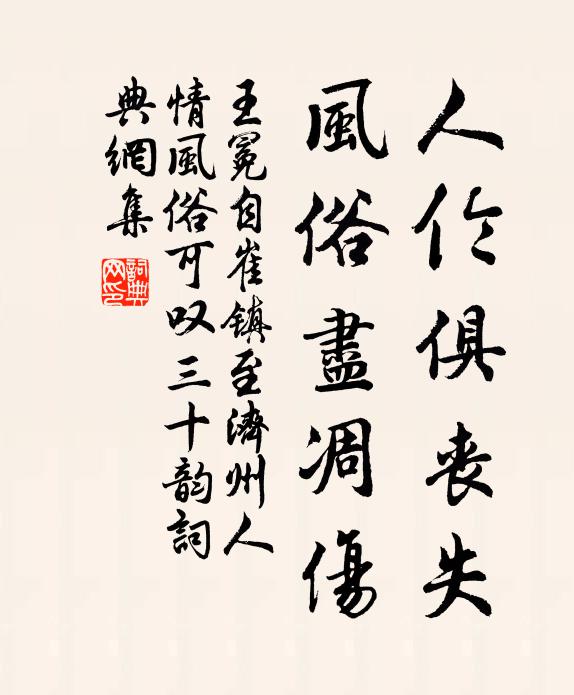 人伦俱丧失
風俗盡凋傷
王冕自崔鎮至濟州人
情風俗可叹三十韵詞
典網集
詞典
网印